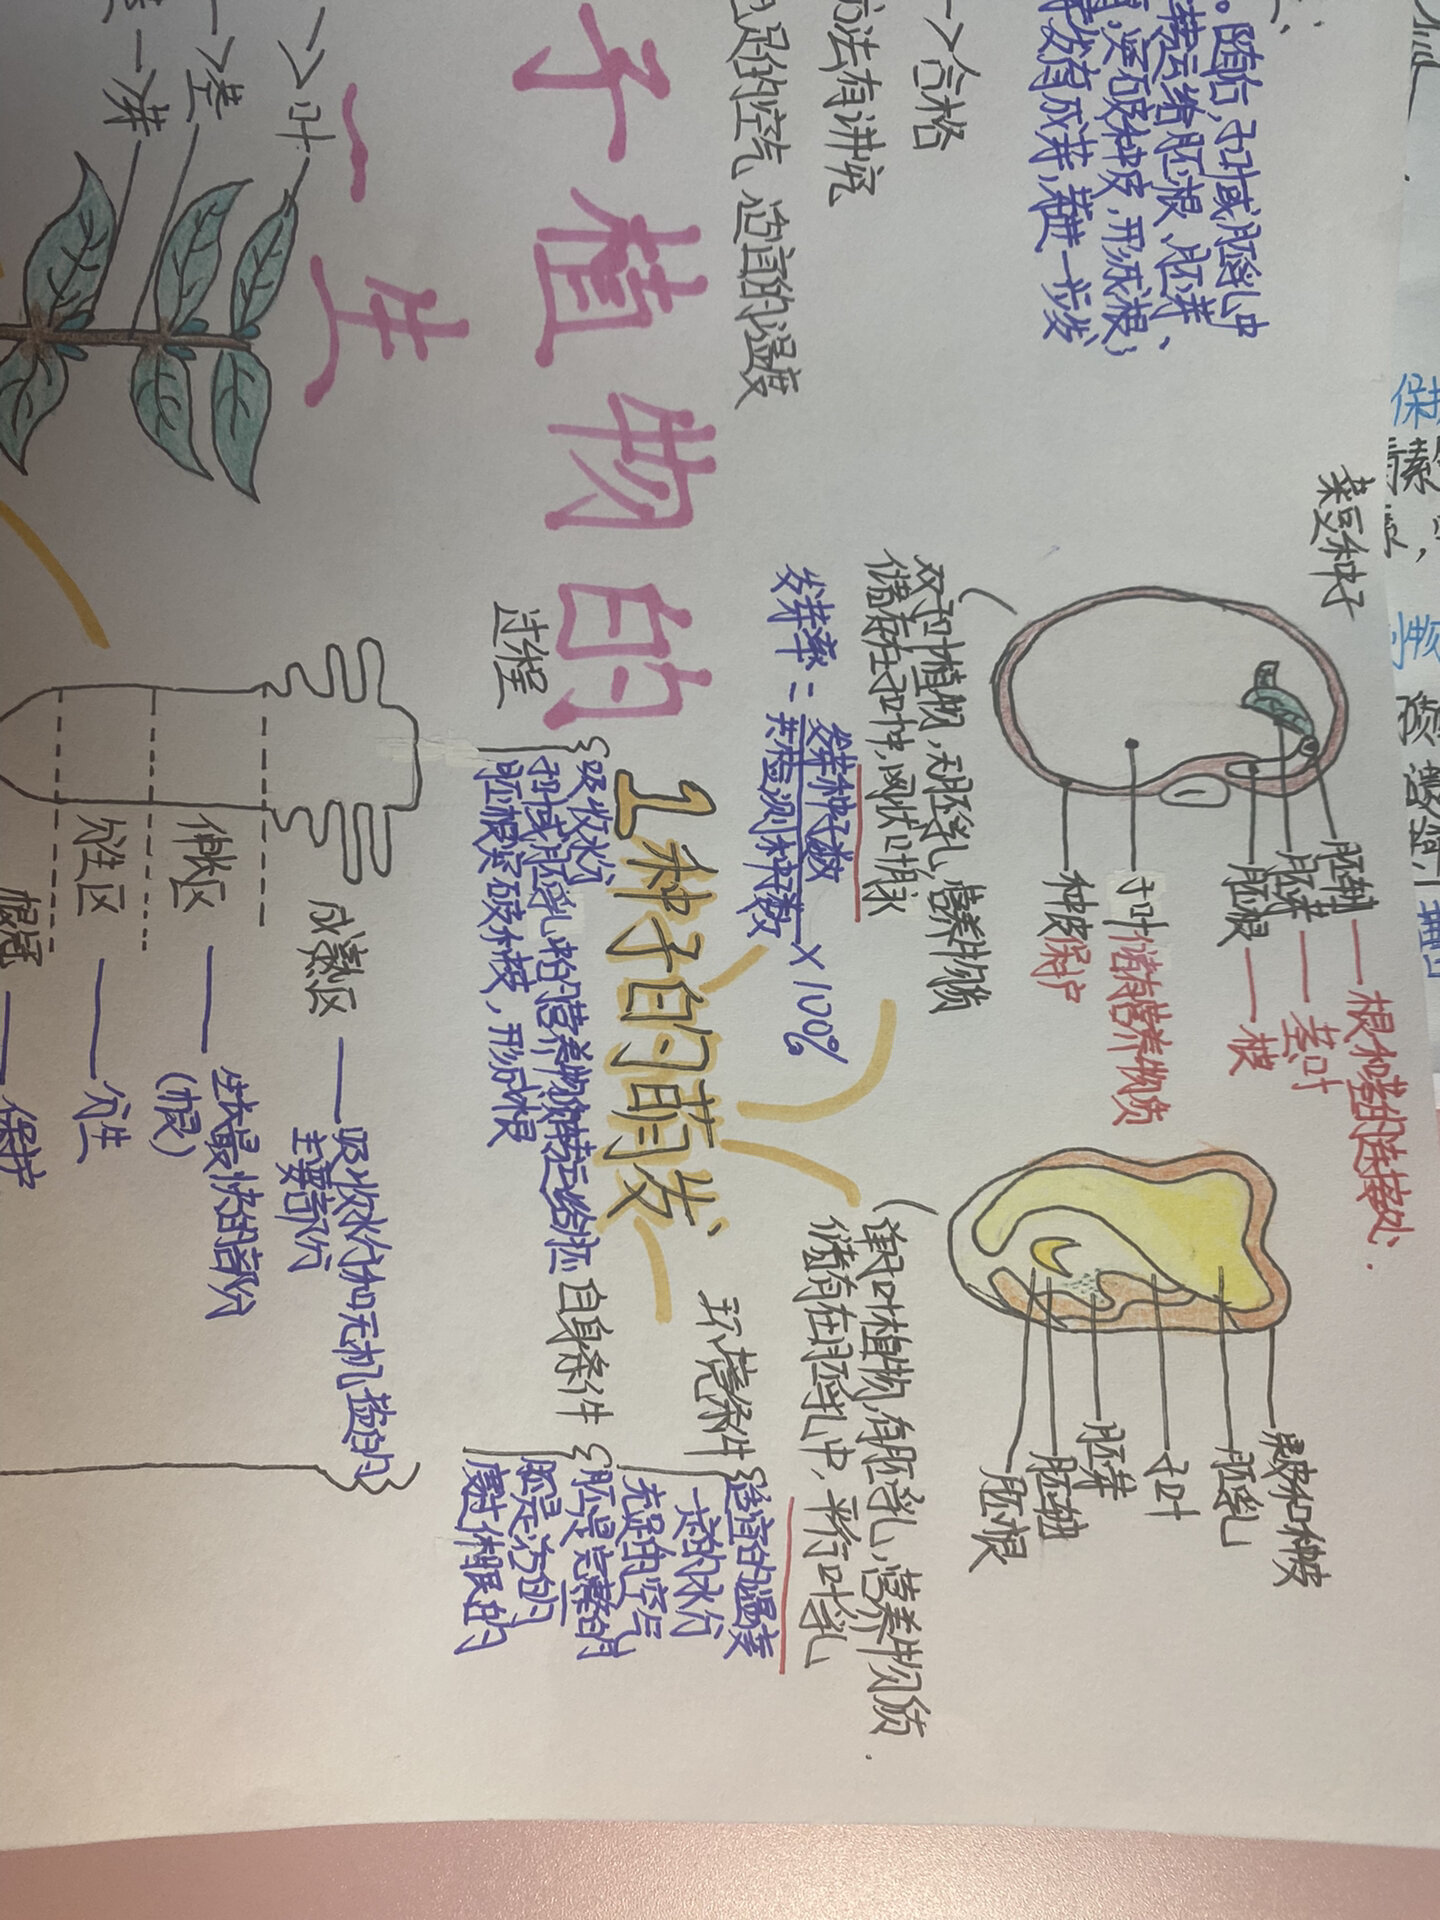 。随后，子叶或胚乳中
转运给胚根、胚芽、
突破种皮，形成根；
发育成芽，芽进一步发
合格
方法有讲究
充足的空气、适宜的温度
子植物的
一生
叶
茎
芽
菜豆种子
胚轴—根和茎的连接处.
胚芽—茎叶
胚根—根
子叶 储存营养物质
种皮 保护
双子叶植物，无胚乳，营养物质
储存在子叶中，网状叶脉
发芽率=发芽种子数/共检测种子数×100%
果皮和种皮
胚乳
子叶
胚芽
胚轴
胚根
单子叶植物，有胚乳，营养物质.
储存在胚乳中，平行叶乳
1种子的萌发
环境条件
适宜的温度
一定的水分
充足的空气
自身条件
胚是完整的
胚是活的
度过休眠的
过程
吸收水分
子叶或胚乳中的营养物质转运给胚
胚根突破种皮，形成根
成熟区—吸收水分和无机盐的
主要部分
伸长区—生长最快的部分
(根)
分生区—分生
根冠—保护